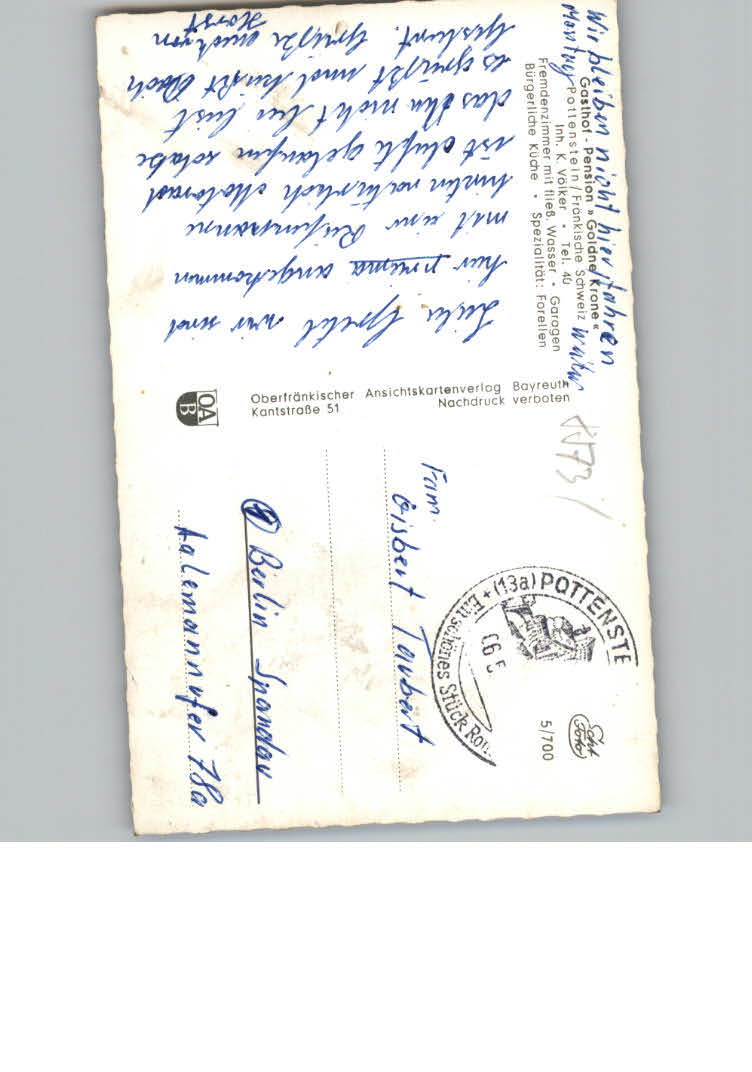 Gasthof-Pension »Goldne Krone«
Pottenstein/Fränkische Schweiz
Inh. K. Völker • Tel. 40
Fremdenzimmer mit fließ. Wasser • Garagen
Bürgerliche Küche • Spezialität: Forellen
Wir bleiben nicht hier fahren
Montag weiter
wir sind
hier prima angekommen
mit einer Reifenpanne
hinten natürlich Motorrad
ist gelaufen schade
das Du nicht hier bist
es grüßt und küßt Dich
Grüße auch von
Horst
Oberfränkischer Ansichtskartenverlag Bayreuth
Kantstraße 51 Nachdruck verboten
OA
B
Fam.
Gisbert Taubert
Berlin Spandau
Aalemannufer 78a
(13a) POTTENSTE
Ein schönes Stück Rom
Echt
Foto
5/700